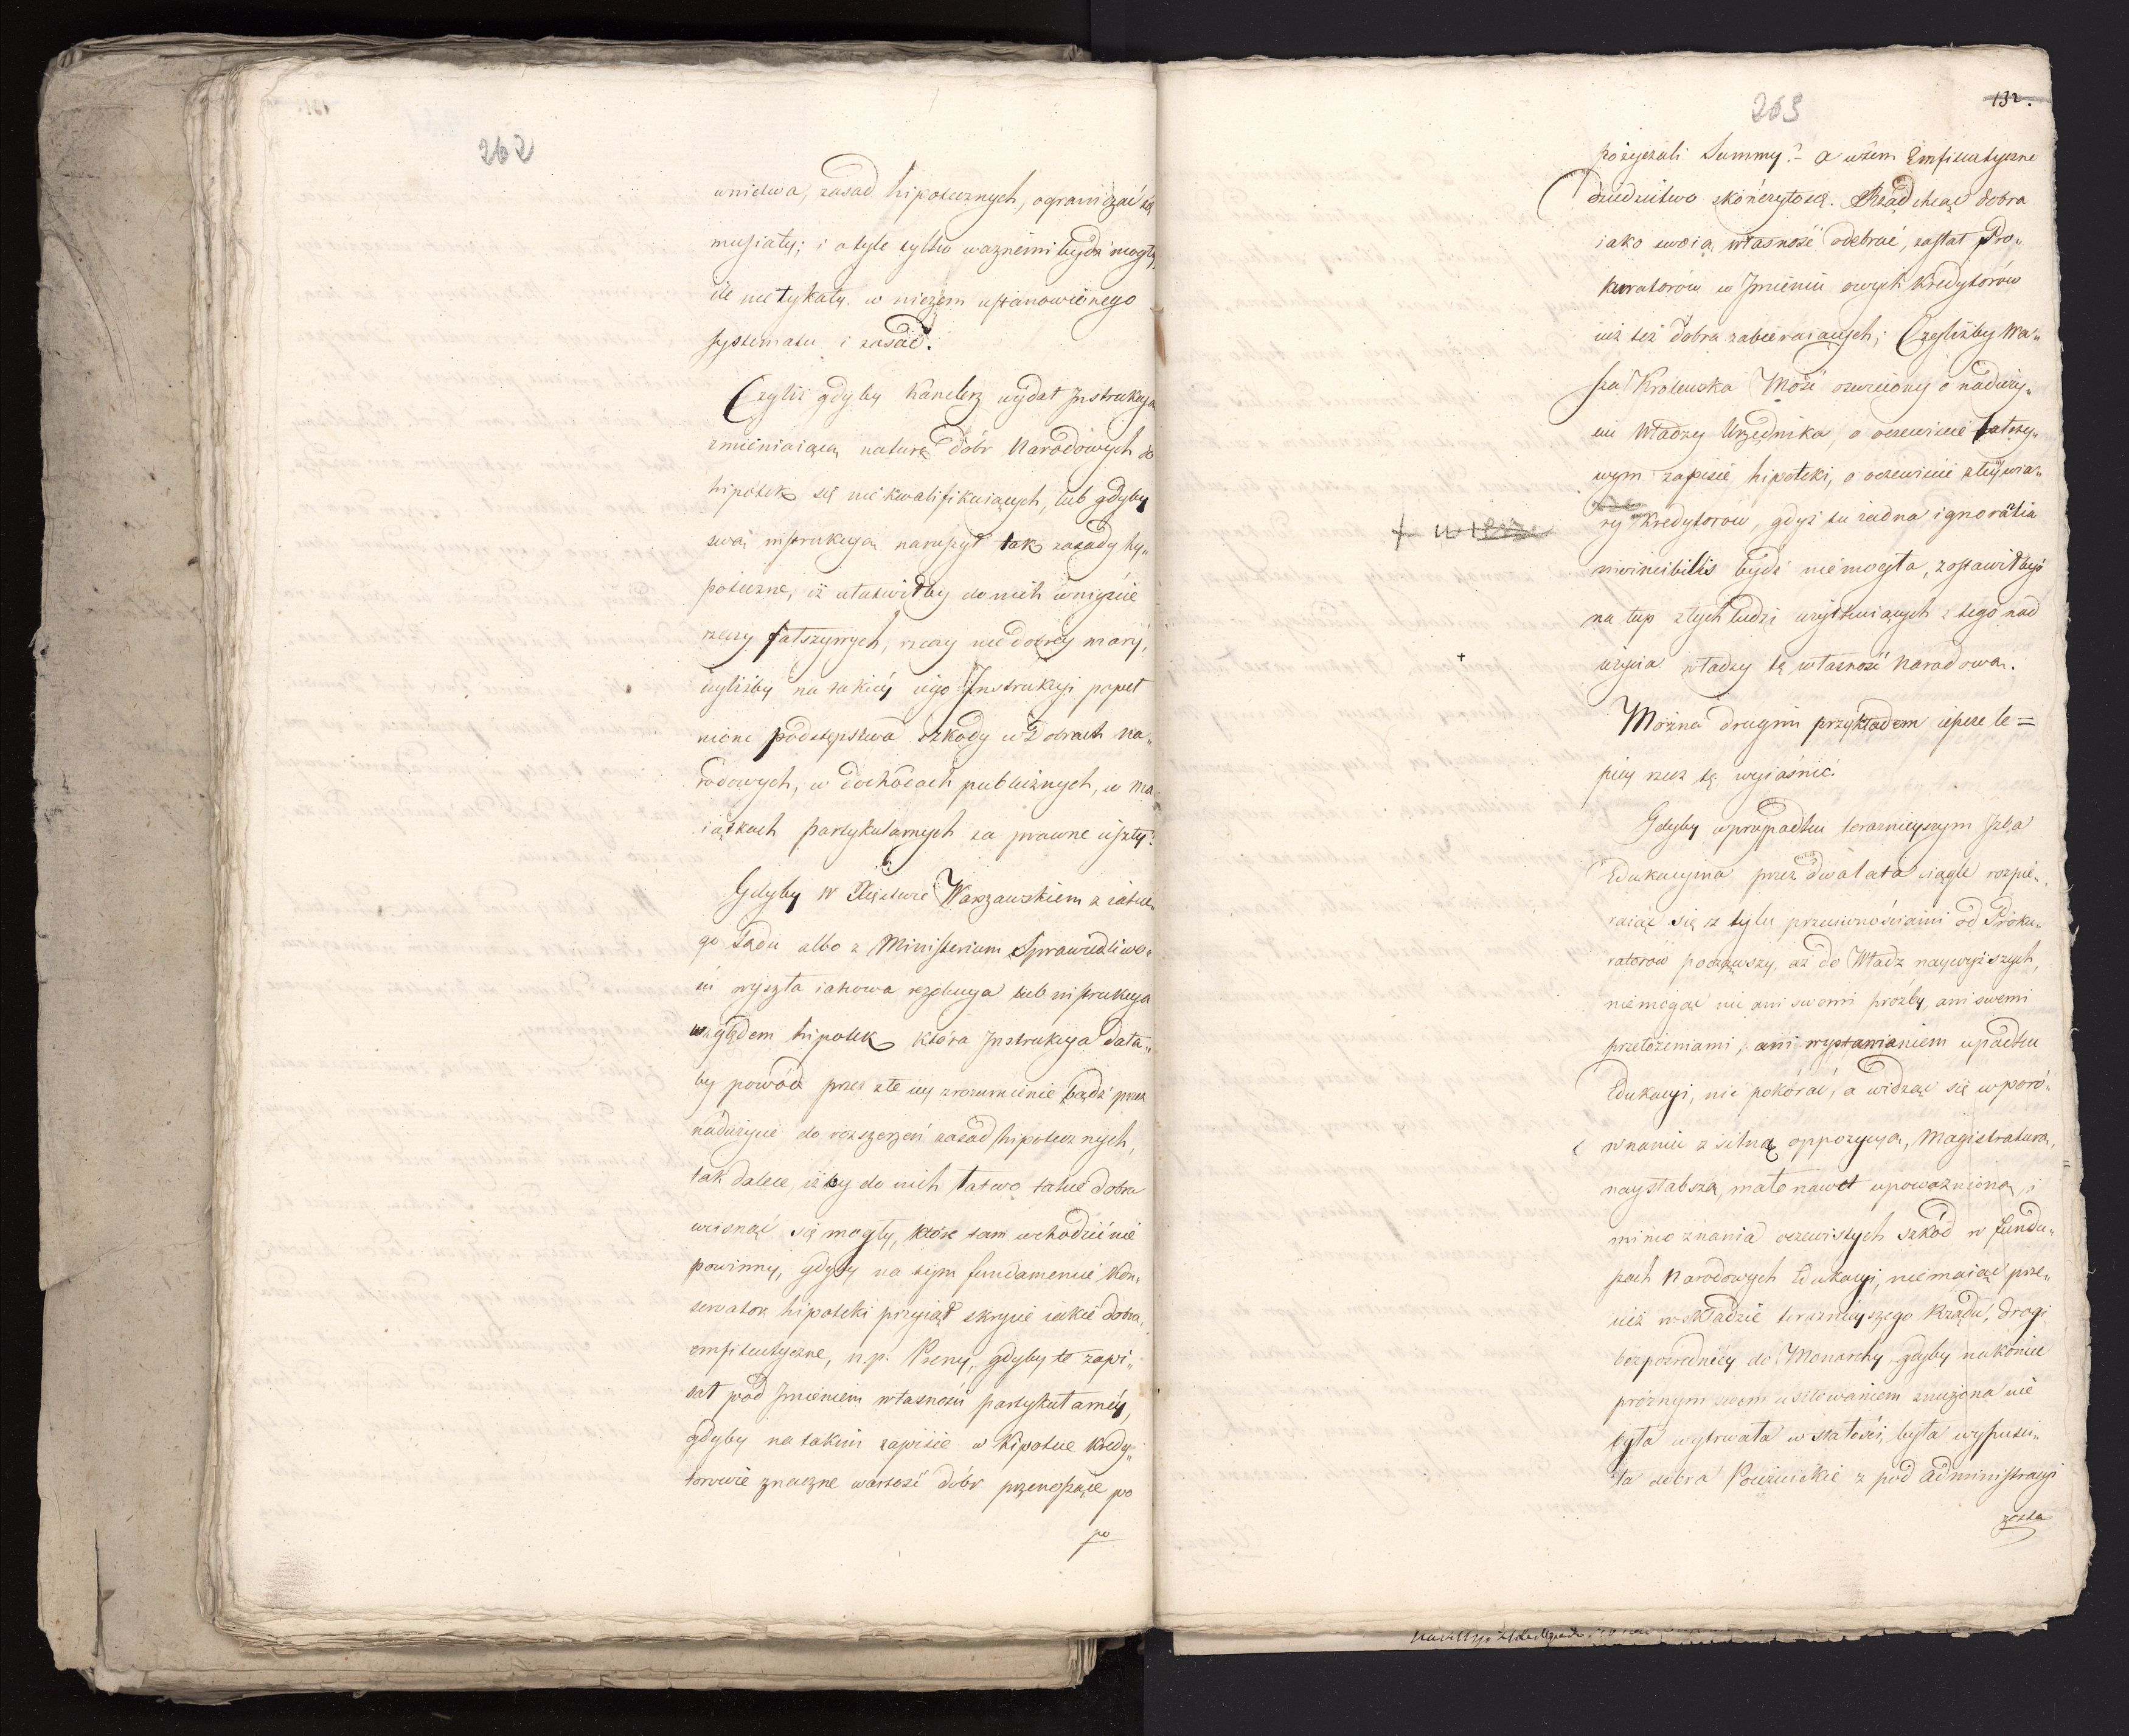 262
wnictwa, zasad hipotecznych, ograniczać się
musiały; i otyle tylko ważnemi bydź mogły,
ile nie tykały w niczem ustanowionego
systematu i zasad.
Czyliż gdyby Kanclerz wydał Instrukcyą
zmieniaiącą naturę dóbr Narodowych do
hipotek się nie kwalifikuiących, lub gdyby
swą instrukcyą naruszył tak zasady hy„
poteczne, iż ułatwiłby do nich wniyście
rzeczy fałszywych, rzeczy nie dobrey wiary,
czyliżby na takiey iego Instrukcyi popeł
nione podstępstwa szkody w Dobrach Na„
rodowych, w dochodach publicznych, w ma„
iątkach partykularnych za prawne uszły?
Gdyby w Xięstwie Warszawskiem z iakie„
go Sądu albo z Ministerium Sprawiedliwo„
ści wyszła iakowa rezolucya lub instrukcya
względem hipotek która Instrukcya dała„
by powód przez złe iey zrozumienie bądź przez
nadużycie do rozszerzeń zasad hipotecznych,
tak dalece, iżby do nich łatwo takie dobra
wcisnąć się mogły, które tam wchodzić nie
powinny, gdyby na tym fundamencie Kon„
serwator hipoteki przyiął skrycie iakie dobra
emfiteutyczne, n.p. gdyby te zapi„
sał pod Imieniem własności partykularney,
gdyby na takim zapisie w Hipotece Kredy„
torowie znaczne wartość dóbr przenoszące po
po
263
132.
pożyczali Summy? – a wtem Emfiteutyczne
dziedzictwo skończyło się. Rząd chcąc dobra
iako swoią własność odebrać, zastał Pro„
kuratorów w Imieniu owych Kredytorów
iuż też dobra zabieraiących; Czyliżby Wa„
sza Krolewska Mość ostrzeżony o naduży„
ciu Władzy Urzędnika, o oczewiście fałszy„
wym zapisie hipoteki, o oczewiście złey wia„
ry Kredytorow, gdyż tu żadna ignorantia
invincibilis bydź nie mogła, zostawiłbyś
na łup złych ludzi użytkuiących z tego nad
użycia władzy tę własność Narodową.
Można drugim przykładem ieszcze le=
piey rzecz tę wyiaśnić.
Gdyby w przypadku teraznieyszym Izba
Edukacyina przez dwa lata ciągle rozpie„
raiąc się z tylu przeciwnościami od Proku„
ratorow począwszy, aż do Władz naywyższych,
niemogąc nic ani swemi prozby, ani swemi
przełożeniami, ani wystawianiem upadku
Edukacyi, nic pokonać, a widząc się w poró„
wnaniu z silną oppozycyą, Magistraturą,
naysłabszą, mało nawet upoważnioną, i
mimo znania oczewistych szkód w fundu„
szach Narodowych Edukacyi, nie maiąc prze„
cież w składzie teraznieyszego Rządu, drogi
bezpośredniey do Monarchy gdyby nakoniec
próżnym swem usiłowaniem znużona nie
była wytrwała w stałości, była wypuści„
ła dobra z pod Administracyi